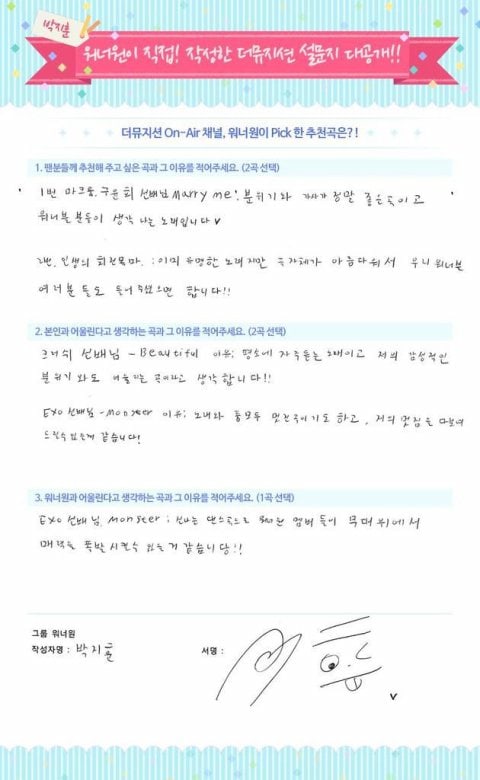 박지훈
워너원이 직접! 작성한 더뮤지션 설문지 대공개!!
더뮤지션 On-Air 채널, 워너원이 Pick 한 추천곡은?!
1. 팬분들께 추천해 주고 싶은 곡과 그 이유를 적어주세요. (2곡 선택)
1번 마크툽, 구윤회 선배님 Marry me : 분위기와 가사가 정말 좋은곡이고
워너블 분들이 생각 나는 노래입니다 v
2번. 인생의 회전목마. : 이미 유명한 노래지만 곡 자체가 아름다워서 우리 워너블
여러분들도 들어 주셨으면 합니다!!
2. 본인과 어울린다고 생각하는 곡과 그 이유를 적어주세요. (2곡 선택)
크러쉬 선배님 - Beautiful 이유: 평소에 자주듣는 노래이고 저의 감성적인
분위기 와도 어울리는 곡이라고 생각합니다!!
Exo 선배님 - Monster 이유: 노래와 통모두 멋진곡이기도 하고, 저의 멋짐을 보여
드릴수 있는게 같습니다!
3. 워너원과 어울린다고 생각하는 곡과 그 이유를 적어주세요. (1곡 선택)
Exo 선배님, Monster : 신나는 댄스곡으로 워너원 멤버 들이 무대 위에서
매력을 폭발 시킬수 있는게 같습니당!!
그룹 워너원
작성자명 : 박지훈
서명 :